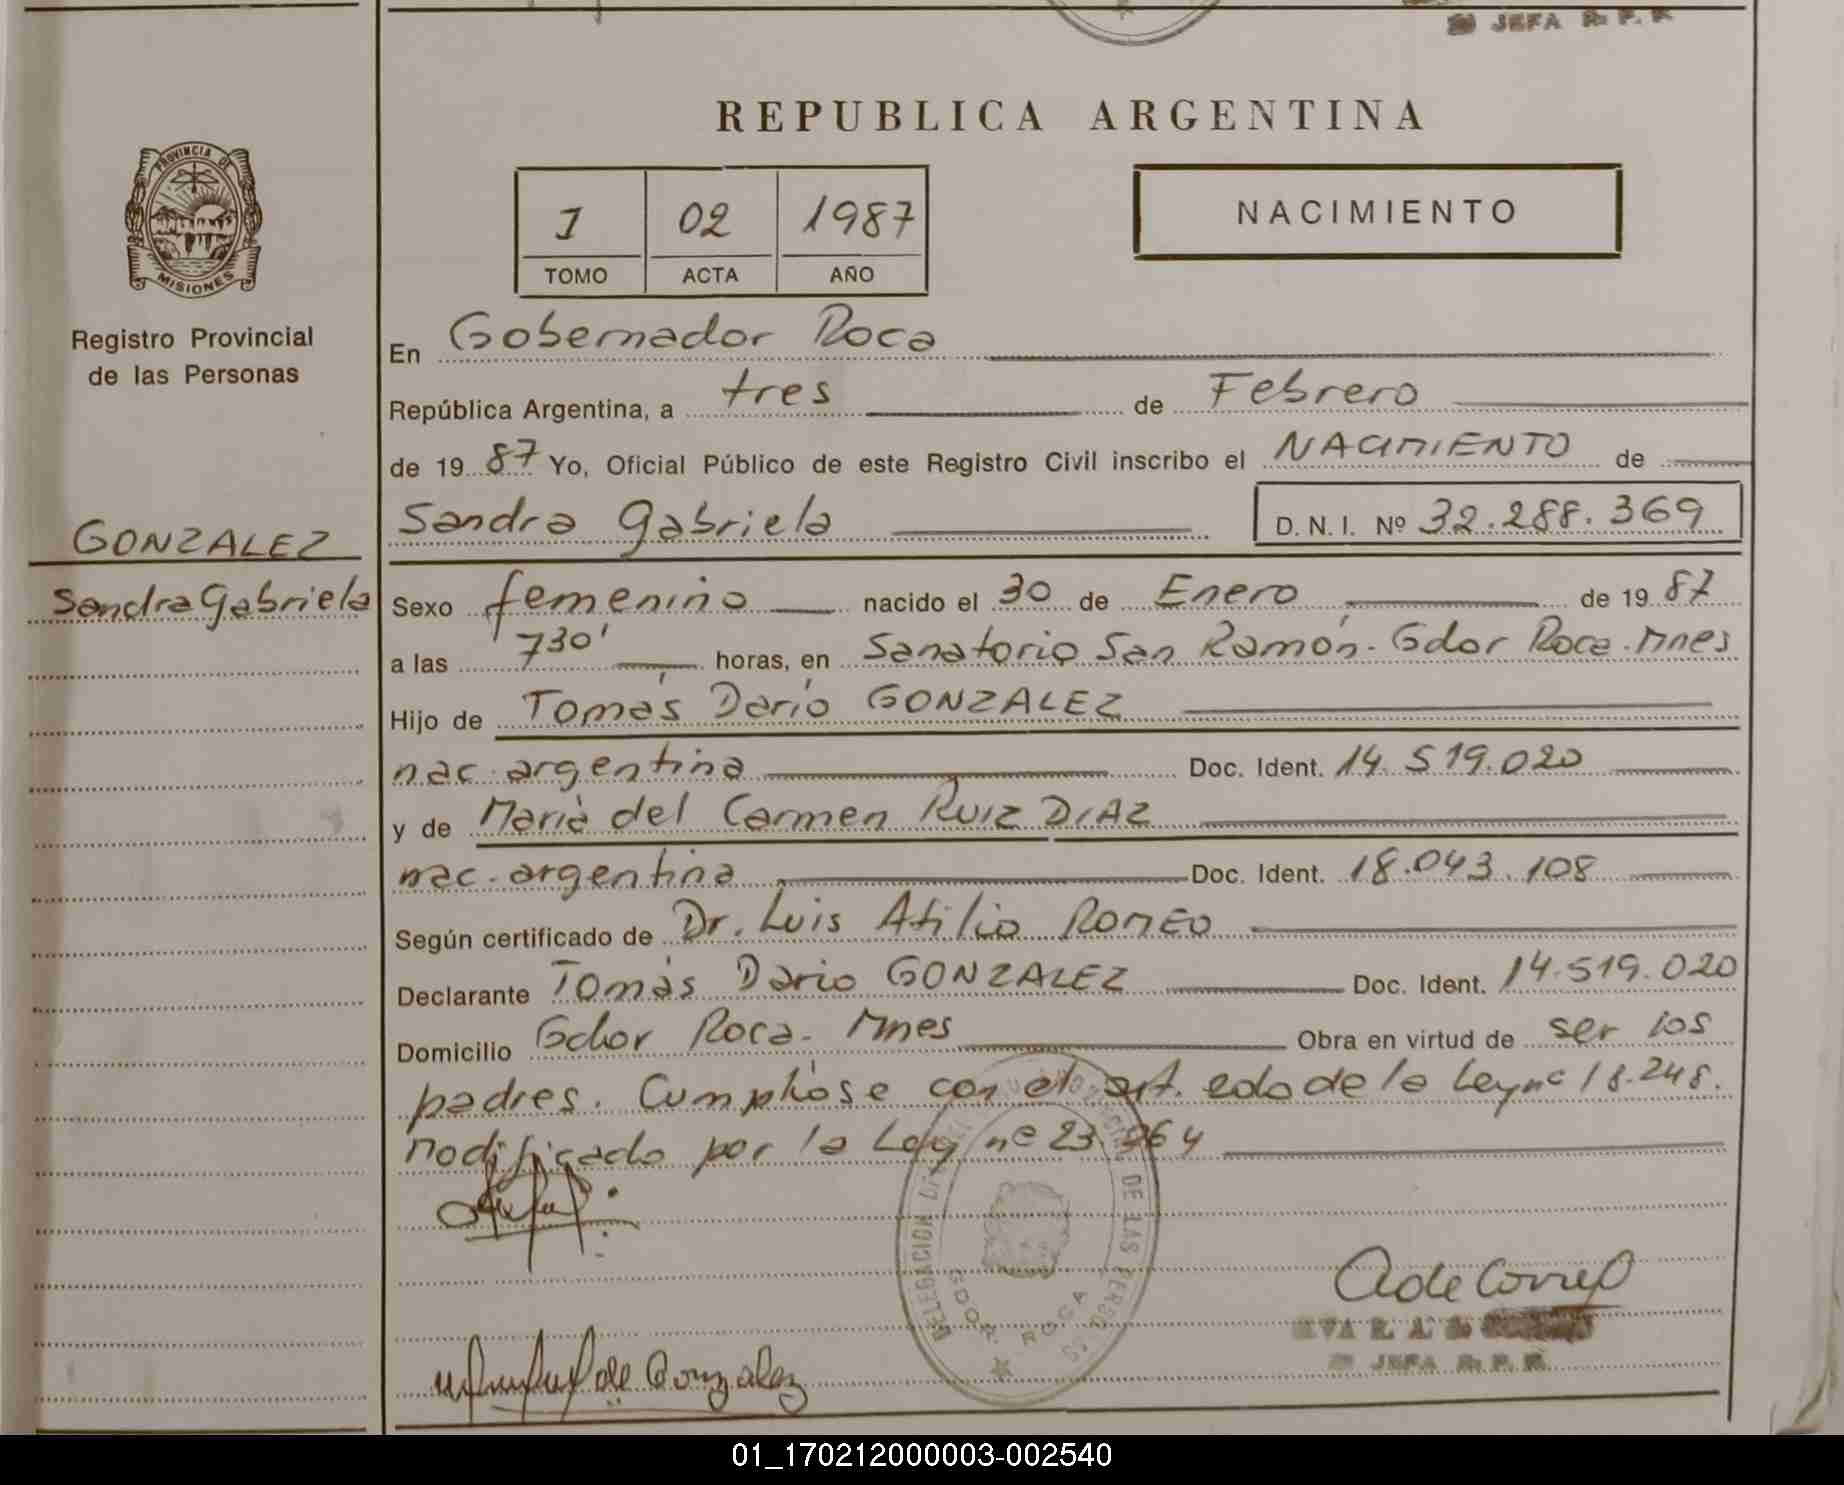 JEFA R. P. P.
REPUBLICA ARGENTINA
PROVINCIA DE MISIONES
1 02 1987
TOMO ACTA AÑO
NACIMIENTO
Registro Provincial
de las Personas
En Gobernador Roca
República Argentina, a tres de Febrero
de 19 87 Yo, Oficial Público de este Registro Civil inscribo el NACIMIENTO de
GONZALEZ
Sandra Gabriela
Sandra Gabriela D. N. I. Nº 32.288.369
Sexo femenino nacido el 30 de Enero de 19 87
a las 730' horas, en Sanatorio San Ramón. Gdor Roca. Mnes
Hijo de Tomás Darío GONZALEZ
nac. argentina Doc. Ident. 14.519.020
y de María del Carmen RUIZ DIAZ
nac. argentina Doc. Ident. 18.043.108
Según certificado de Dr. Luis Atilio ROMEO
Declarante Tomás Dario GONZALEZ Doc. Ident. 14.519.020
Domicilio Gdor Roca. Mnes Obra en virtud de ser los
padres. Cumplióse con el art. 2do de la Ley nº 18.248.
modificado por la Ley nº 23.264
DE LAS PERSONAS
DELEGACION
GDOR. ROCA
de Gonzalez
JEFA R. P. P.
01_170212000003-002540